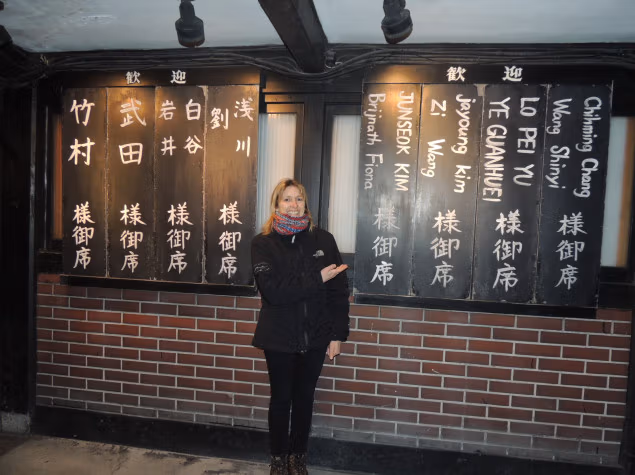 歡迎
浅川
劉
様御席
白谷
岩井
様御席
武田
様御席
竹村
様御席
歡迎
Chihming Chang
Wang Shinyi
様御席
LO PEI YU
YE GUANHUEI
様御席
Jayoung kim
Zi Wang
様御席
JUNSEOK KIM
Brijnath Fiona
様御席